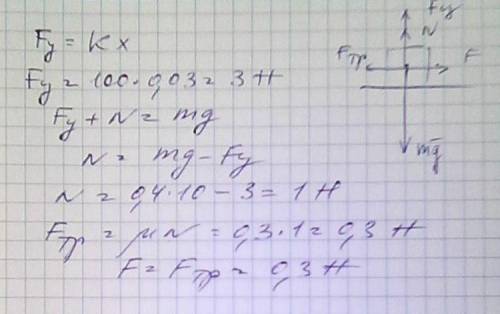 Fу = K x
Fу = 100 · 0,03 = 3 Н
Fу + N = mg
N = mg - Fу
N = 0,4 · 10 - 3 = 1 Н
Fтр = μN = 0,3 · 1 = 0,3 Н
F = Fтр = 0,3 Н
Fу
N
Fтр
F
mg